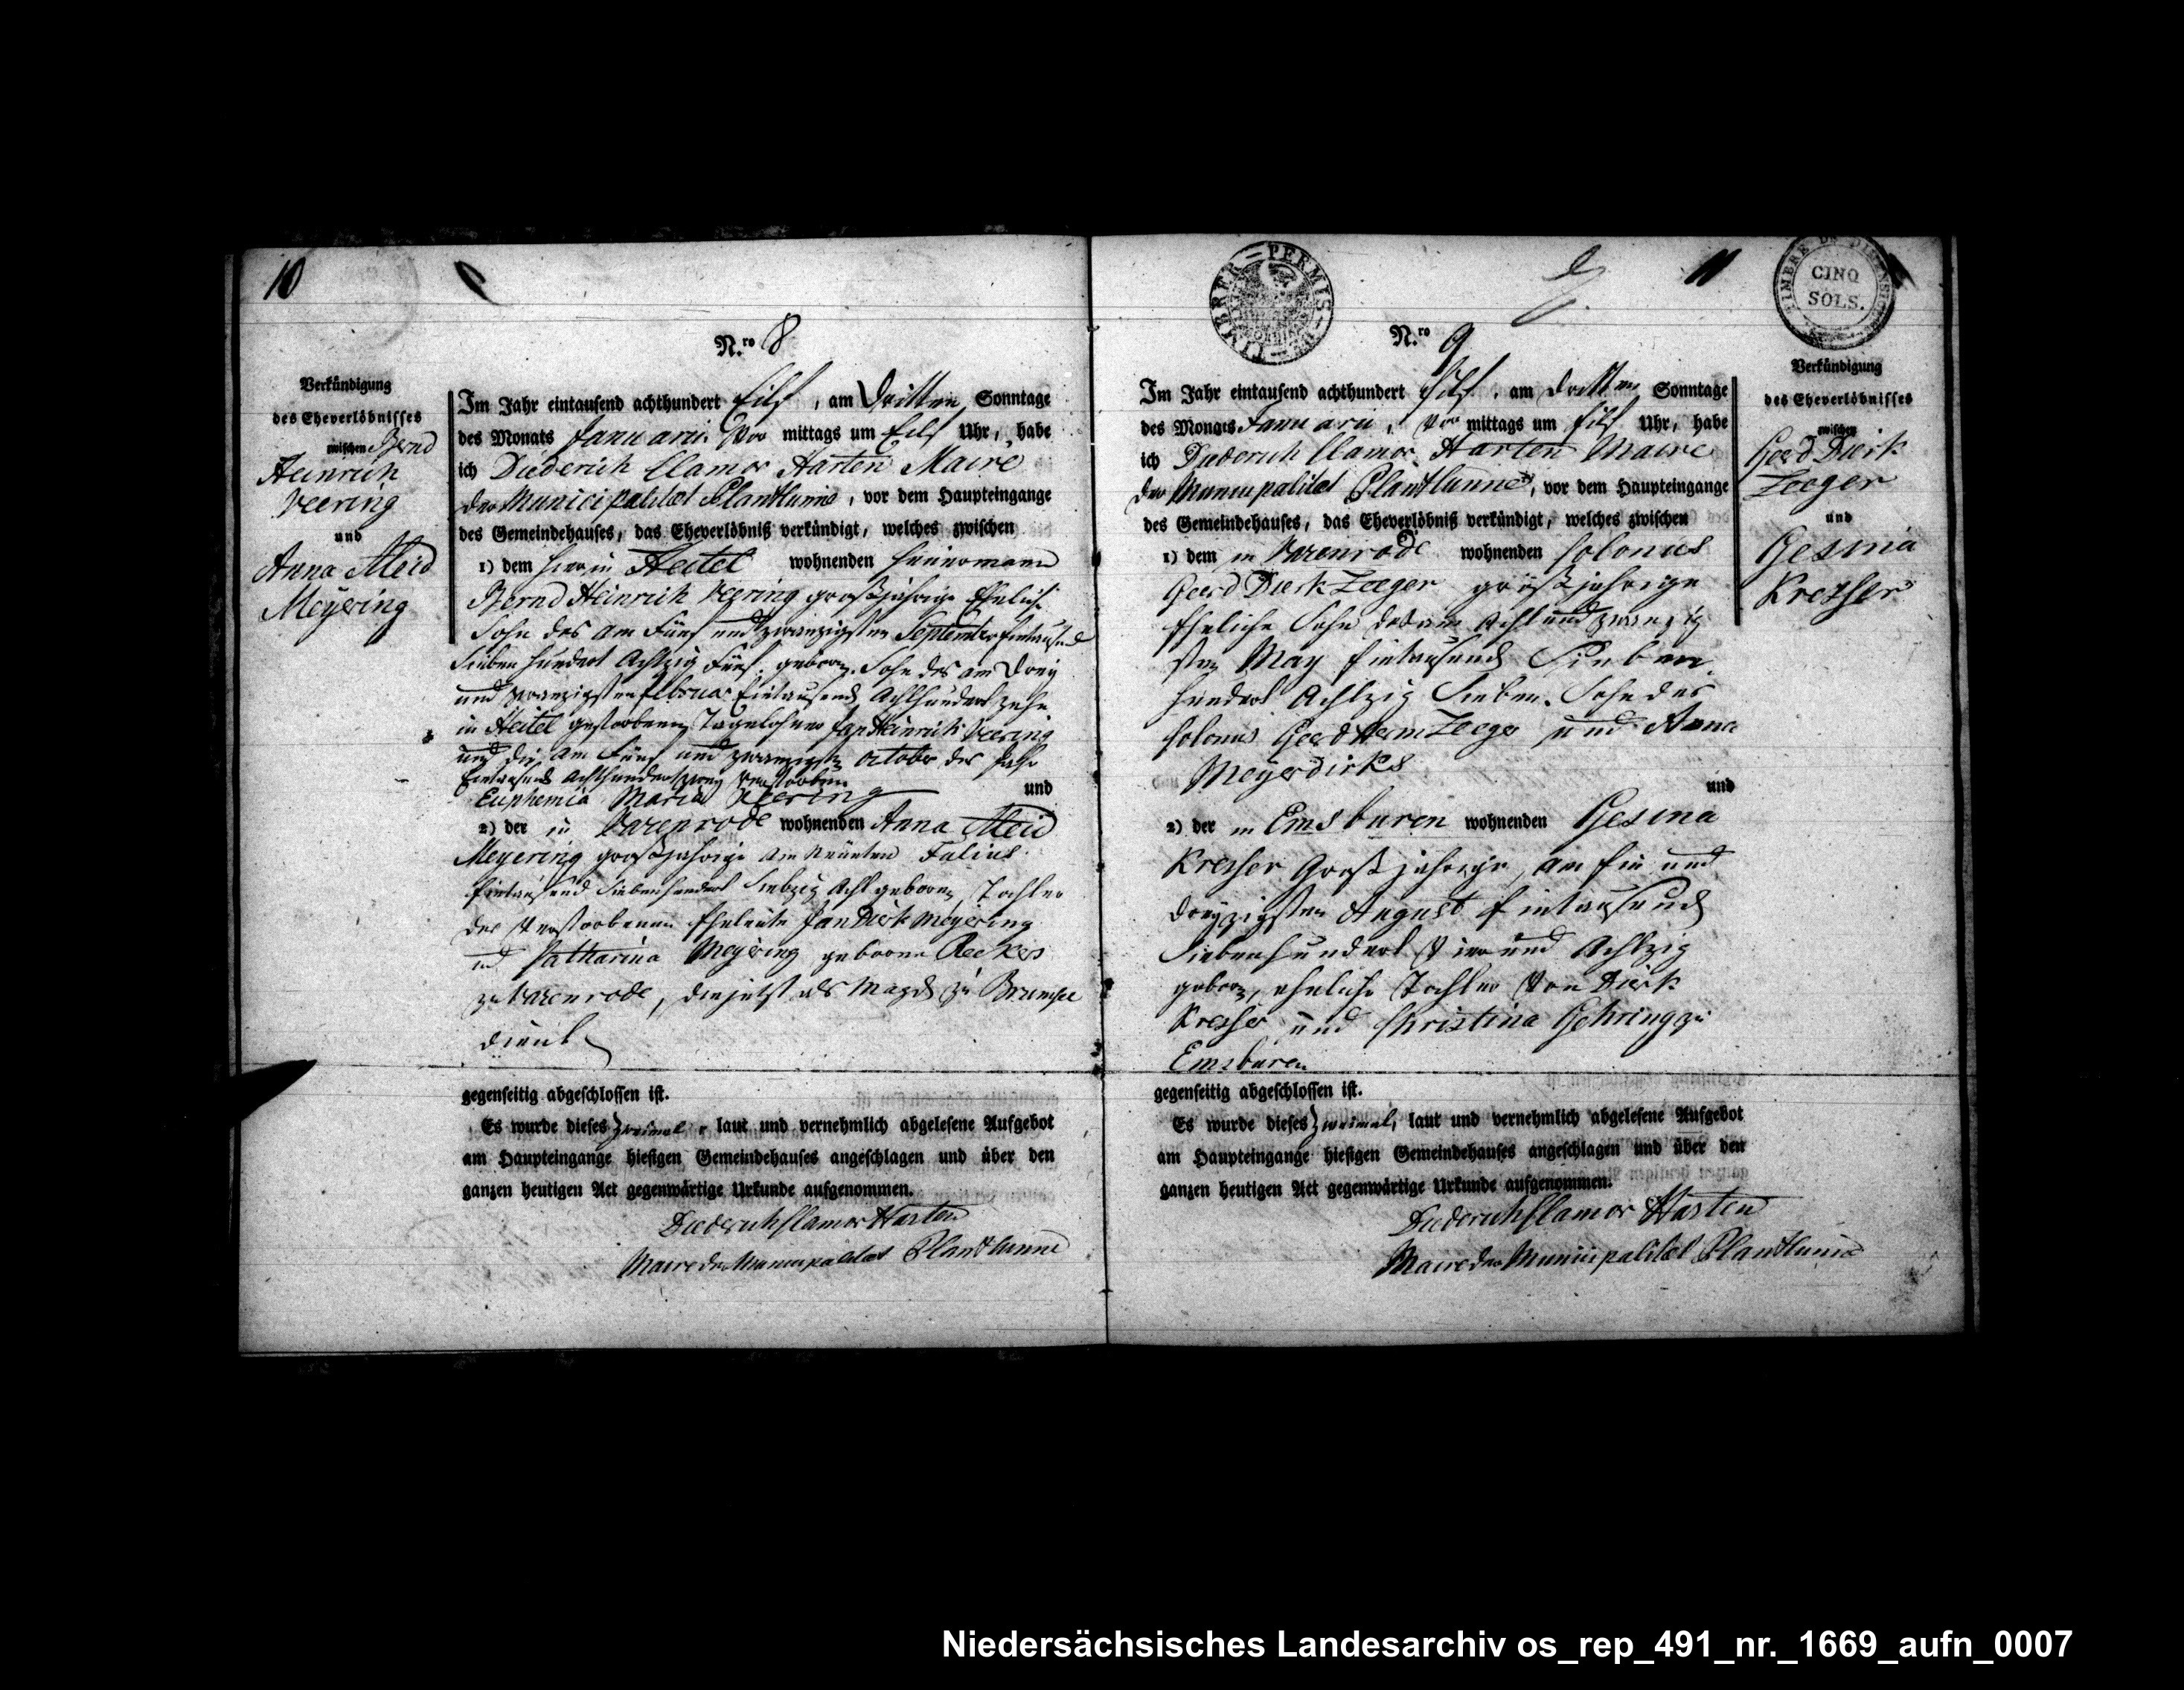 10
N.ro 8
Verkündigung
des Eheverlöbnisses
zwischen Bernd
Heinrich
Veering
und
Anna Aleid
Meyering
Im Jahr eintausend achthundert Eilf, am Dritten Sonntage
des Monats Januarii, Vor mittags um Eilf Uhr, habe
ich Diederich Clamor Harten Maire
der Municipalitaet Plantlunne, vor dem Haupteingange
des Gemeindehauses, das Eheverlöbniß verkündigt, welches zwischen
1) dem hier in Heitel wohnenden Heuermann
Bernd Heinrich Veering großjährige Eheliche
Sohn des am Fünf und zwanzigsten September Eintausend
Sieben hundert Achtzig Fünf geboren, Sohn des am Drey
und zwanzigsten Februar Eintausend Achthundert zehn
in Heitel gestorbenen Tagelöhner Jan Heinrich Veering
und die am Fünf und zwanzigsten October des Jahr
Eintausend Achthundert verstorben
Euphemia Maria Veering und
2) der in Varenrode wohnenden Anna Aleid
Meyering großjährige am Neunten Julius
Eintausend Siebenhundert Siebzig Acht geboren, Tochter
der Verstorbenen Eheleute Jan Dirk Meyering
und Catharina Meyering geborne Reekers
zu Varenrode, die jetzt als Magd zu
dient
gegenseitig abgeschlossen ist.
Es wurde dieses zweimal, laut und vernehmlich abgelesene Aufgebot
am Haupteingange hiesigen Gemeindehauses angeschlagen und über den
ganzen heutigen Act gegenwärtige Urkunde aufgenommen.
Diederich Clamor Harten
Maire der Municipalitaet Plantlunne
11
TIMBRER - PERMIS - DE
TIMBRE DE DIMENSION
CINQ
SOLS.
N.ro 9
Verkündigung
des Eheverlöbnisses
zwischen
Geerd Dierk
Zeeger
und
Gesina
Kresher
Im Jahr eintausend achthundert Eilf, am Dritten Sonntage
des Monats Januarii, Vor mittags um Eilf Uhr, habe
ich Diederich Clamor Harten Maire
der Municipalitaet Plantlunne, vor dem Haupteingange
des Gemeindehauses, das Eheverlöbniß verkündigt, welches zwischen
1) dem in Varenrode wohnenden Colonus
Geerd Dierk Zeeger großjährige
Eheliche Sohn des am Acht und zwanzig
sten May Eintausend Sieben
hundert Achtzig Sieben. Sohn des
Colonus Geerd Herm Zeeger und Anna
Meyerdirks
und
2) der in Emsbüren wohnenden Gesina
Kresher Großjährige, am Ein und
dreyzigsten August Eintausend
Siebenhundert Vier und Achtzig
geboren, eheliche Tochter von Dierk
Kresher und Christina Gehring zu
Emsbüren
gegenseitig abgeschlossen ist.
Es wurde dieses zweimal, laut und vernehmlich abgelesene Aufgebot
am Haupteingange hiesigen Gemeindehauses angeschlagen und über den
ganzen heutigen Act gegenwärtige Urkunde aufgenommen.
Diederich Clamor Harten
Maire der Municipalitaet Plantlunne
Niedersächsisches Landesarchiv os_rep_491_nr._1669_aufn_0007